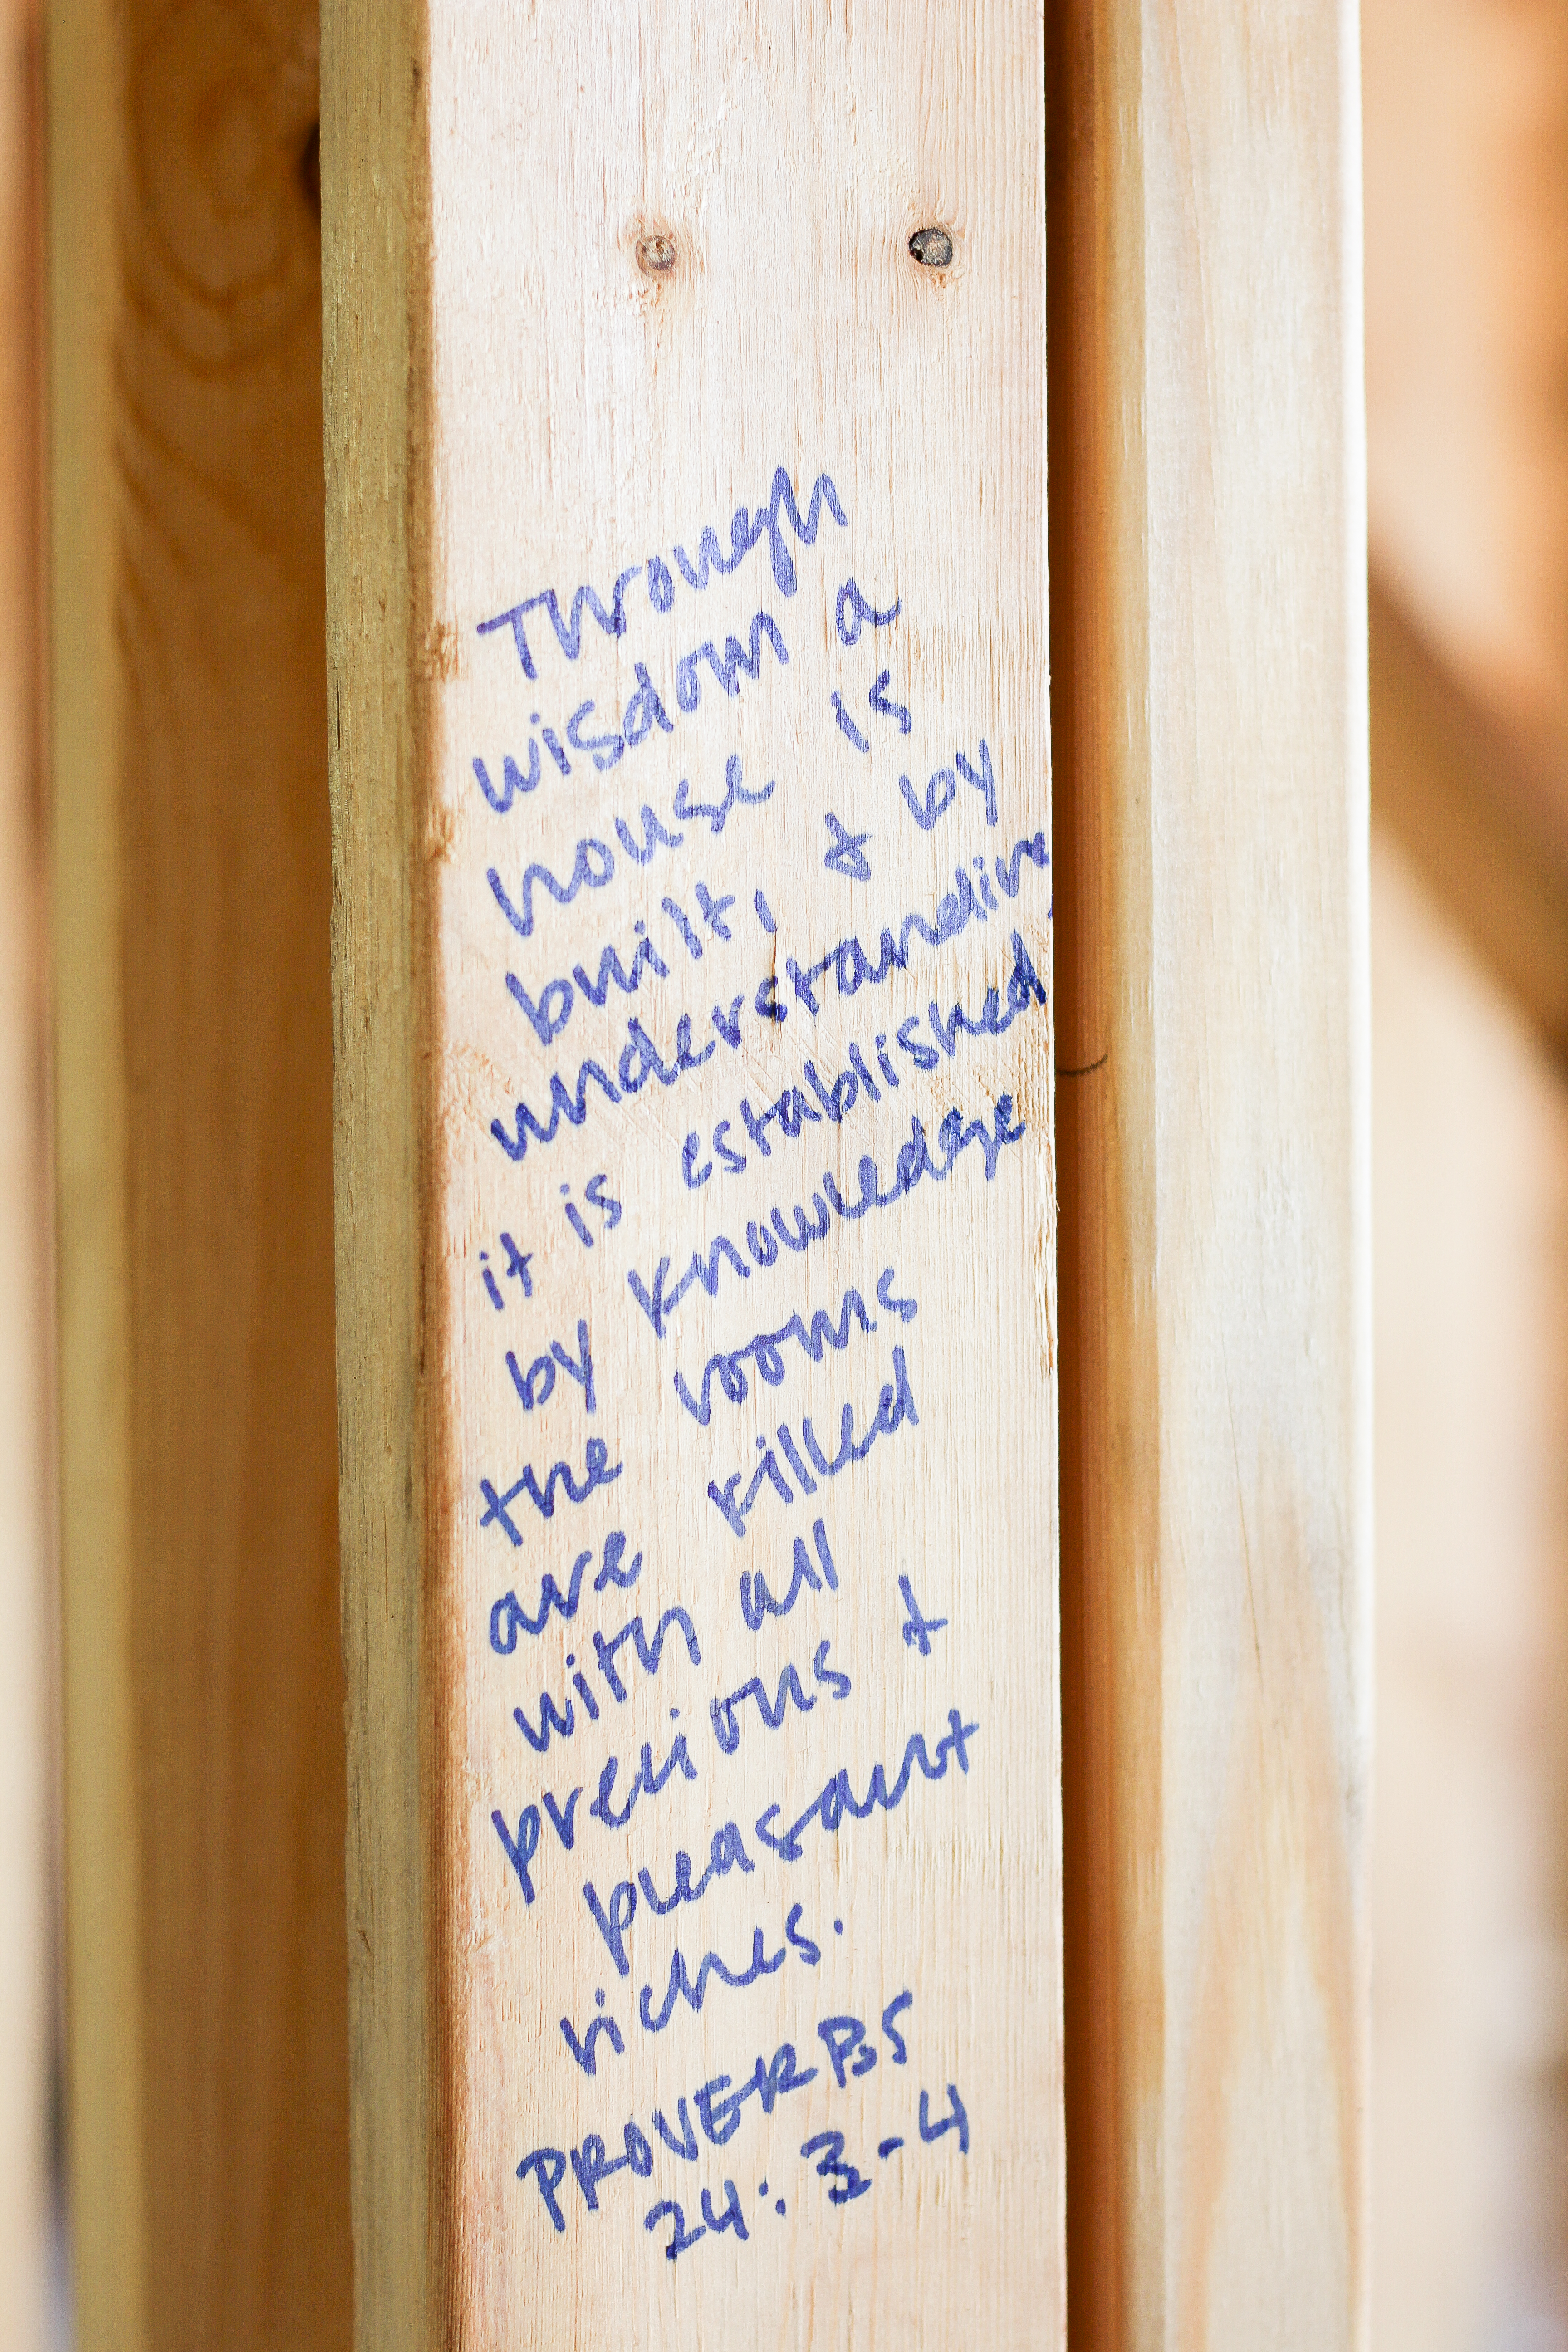 Through
wisdom a
house is
built, & by
understanding
it is established,
by knowledge
the rooms
are filled
with all
precious +
pleasant
riches.
PROVERBS
24:3-4